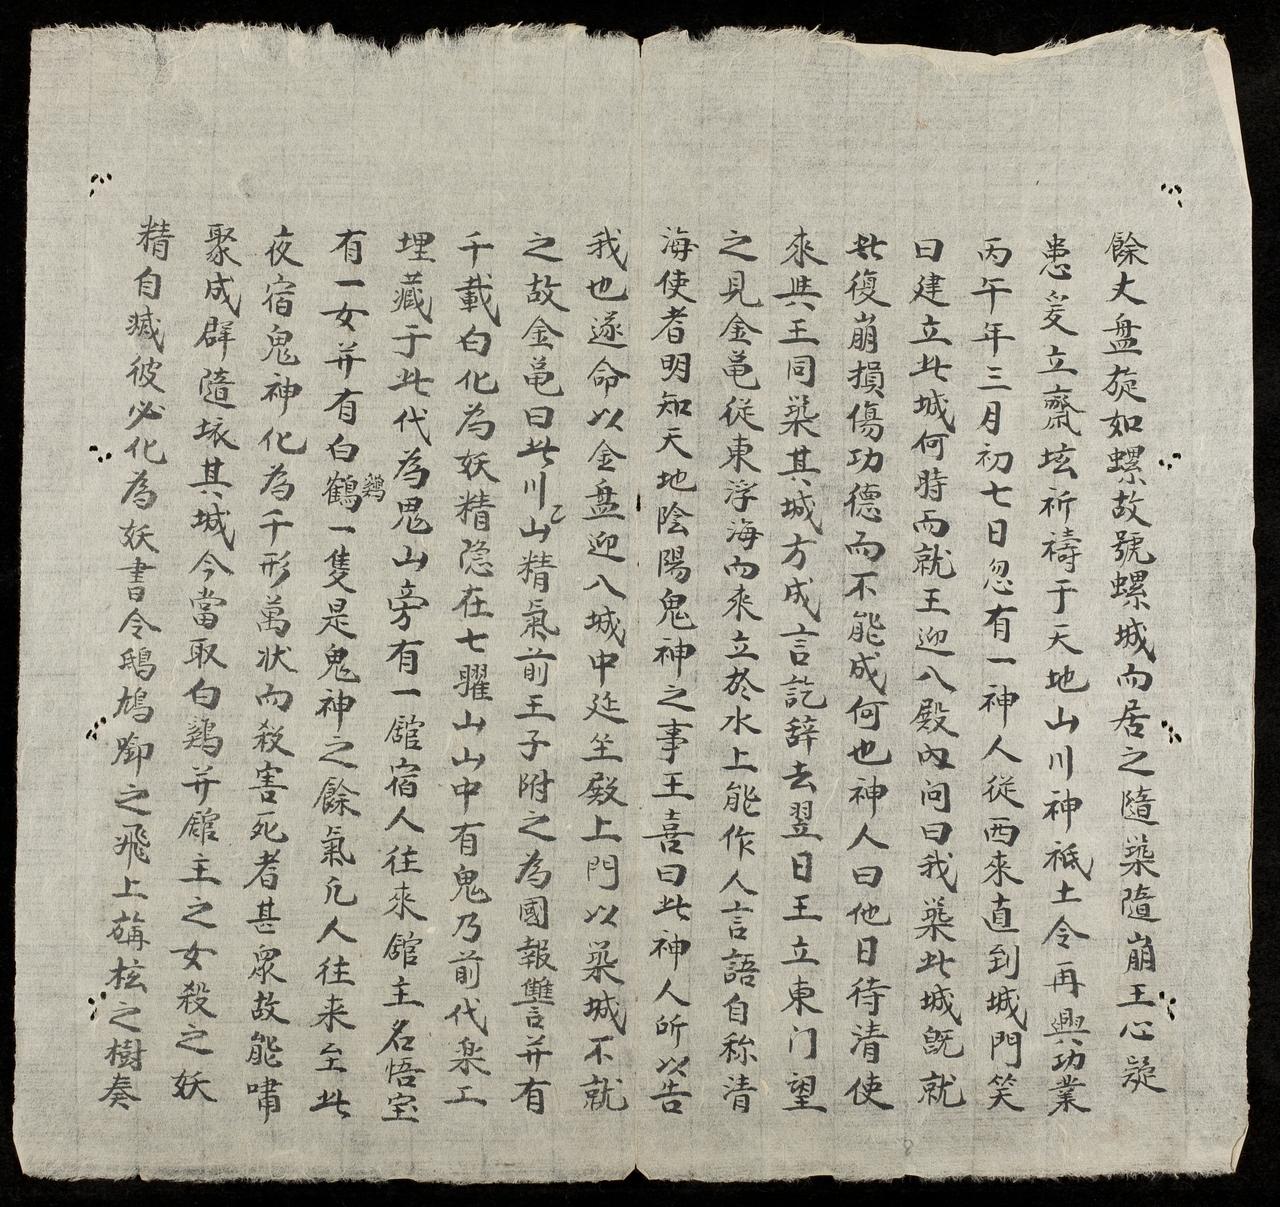 餘丈盘旋如螺故號螺城而居之隨築隨崩王心疑
患爰立齋坛祈禱于天地山川神祗土令再興功業
丙午年三月初七日忽有一神人從西來直到城門笑
曰建立此城何時而就王迎入殿內问曰我築此城既就
此復崩損傷功德而不能成何也神人曰他日待清使
來與王同築其城方成言訖辞去翌日王立東门望
之見金亀從東浮海而來立於水上能作人言語自称清
海使者明知天地陰陽鬼神之事王喜曰此神人所以告
我也遂命以金盘迎入城中延坐殿上門以築城不就
之故金亀曰此川山精氣前王子附之為國報讐并有
千載白化為妖精隐在七曜山山中有鬼乃前代楽工
埋藏于此代為鬼山旁有一舘宿人往來舘主名悟空
有一女并有白鶴鷄一隻是鬼神之餘氣凢人往来至此
夜宿鬼神化為千形萬状而殺害死者甚衆故能嘯
聚成群隨坏其城今當取白鷄并舘主之女殺之妖
精自滅彼必化為妖書令鴟鳩啣之飛上旃枟之樹奏